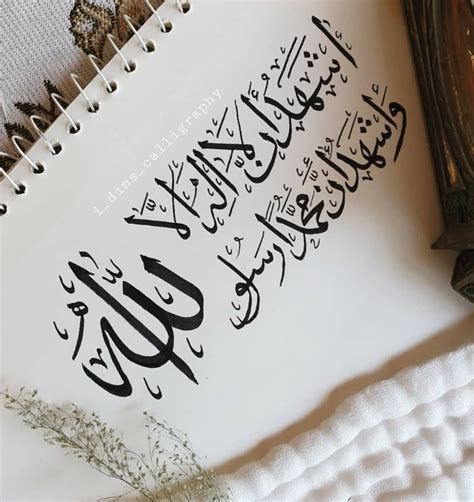 أشهد أن لا إله إلا
وأشهد أن محمدا رسول
الله
i_dins_calligraphy